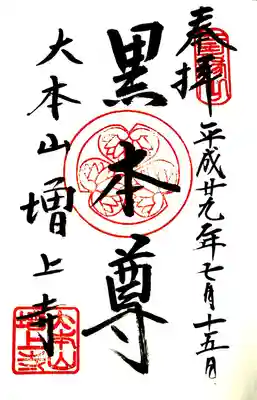 奉拝
平成廿九年七月十五日
黒本尊
大本山増上寺
大本山
増上寺